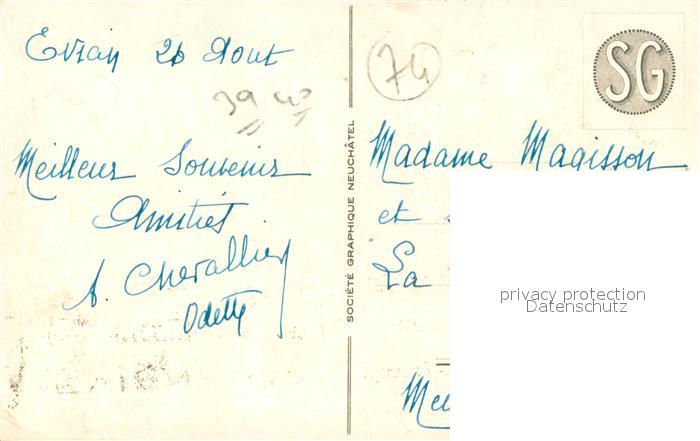 Evian 26 Aout
39 40
Meilleurs Souvenirs
Amitiés
A. Chevallier
Odette
SOCIÉTÉ GRAPHIQUE NEUCHÂTEL
74
SG
Madame Magisson
et
"La
Meu
privacy protection
Datenschutz